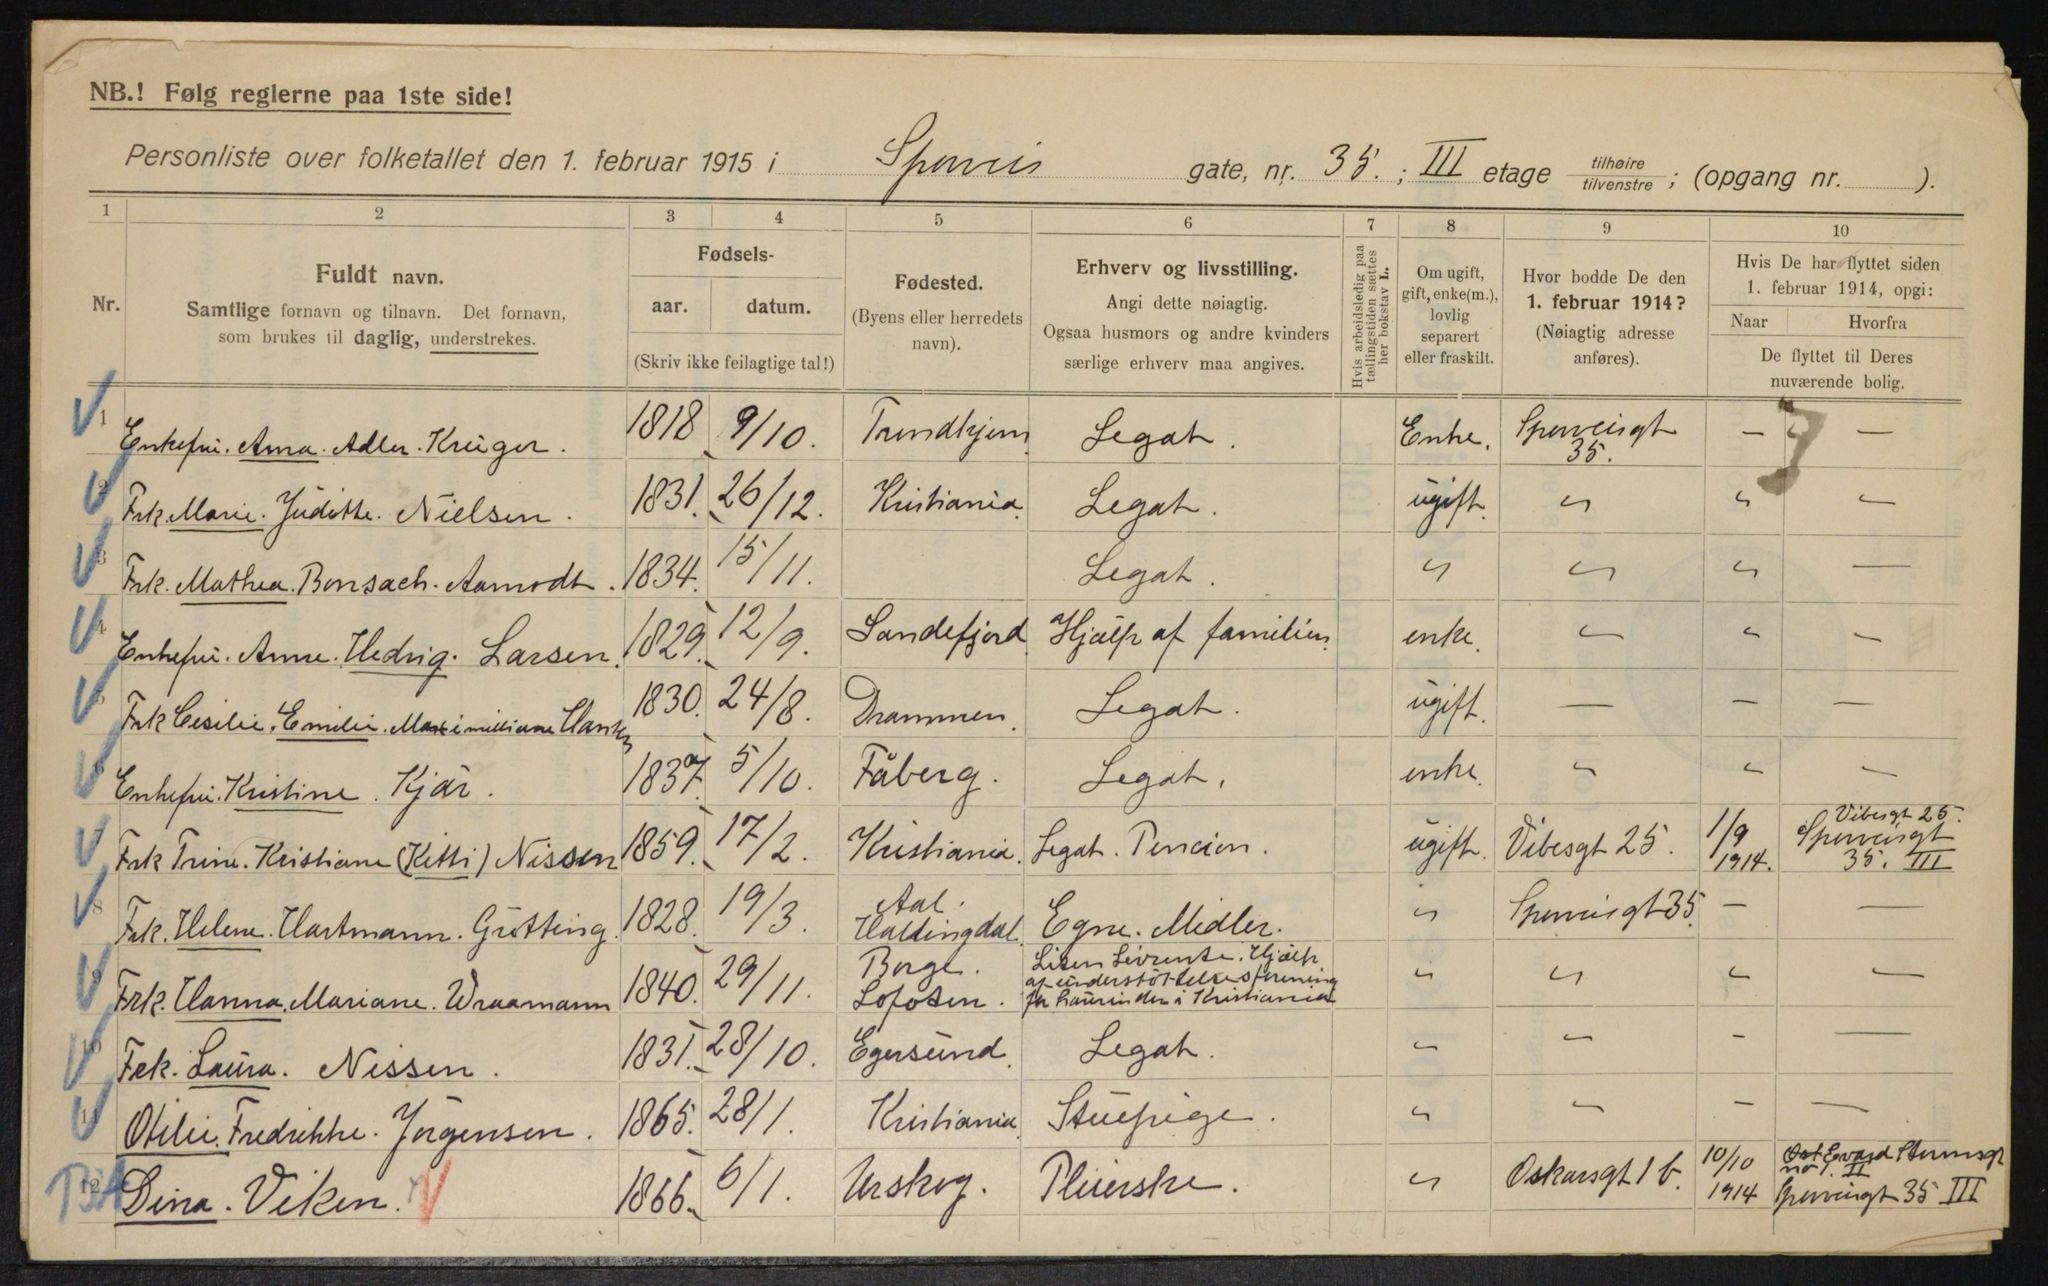 NB.! Følg reglerne paa 1ste side!
Personliste over folketallet den 1. februar 1915 i Sperveis gate, nr. 35. ; III etage tilhøire tilvenstre ; (opgang nr. ).
1 2 3 4 5 6 7 8 9 10
Nr.
Fuldt navn.
Samtlige fornavn og tilnavn. Det fornavn,
som brukes til daglig, understrekes.
Fødsels-
aar. datum.
(Skriv ikke feilagtige tal!)
Fødested.
(Byens eller herredets
navn).
Erhverv og livsstilling.
Angi dette nøiagtig.
Ogsaa husmors og andre kvinders
særlige erhverv maa angives.
Hvis arbeidsledig paa
tællingstiden sættes
her bokstav L.
Om ugift,
gift, enke(m.),
lovlig
separert
eller fraskilt.
Hvor bodde De den
1. februar 1914?
(Nøiagtig adresse
anføres).
Hvis De har flyttet siden
1. februar 1914, opgi:
Naar Hvorfra
De flyttet til Deres
nuværende bolig.
1 Enkefru. Anna. Adler. Krüger. 1818 9/10. Trondhjem Legat. Enke. Sperveisgt 35. — — —
2 Frk. Marie. Juditte. Nielsen. 1831. 26/12. Kristiania. Legat. ugift. " " —
3 Frk. Mathea. Bonsach. Aamodt. 1834. 15/11. Legat. " " " —
4 Enkefru. Anne. Hedvig. Larsen. 1829. 12/9. Sandefjord. Hjælp af familien. enke. " " —
5 Frk Cesilie. Emilie. Maximilliane Hansen 1830. 24/8. Drammen. Legat. ugift. — — —
6 Enkefru. Kristine. Kjær. 1837. 5/10. Fåberg. Legat. enke. " " —
7 Frk Trine. Kristiane (Kitti) Nissen 1859. 17/2. Kristiania. Legat. Pencion. ugift. Vibesgt 25. 1/9 1914. Vibesgt 25. Sperveisgt 35. III
8 Frk. Helene. Hartmann. Grøtting. 1828. 19/3. Aal. Hallingdal. Egne. Midler. " Sperveisgt 35 — —
9 Frk. Hanna. Mariane. Wraamann 1840. 29/11. Borge. Lofoten. Liten Livrente. Hjælp
af understøttelsesforening
for Lærerinder i Kristiania " " " —
10 Frk. Laura. Nissen. 1831. 28/10. Egersund. Legat. " " - —
11 Otilie. Fredrikke. Jørgensen. 1865. 28/1. Kristiania. Stuepige. " " - —
12 Dina. Viken. 1866. 6/1. Urskog. Pleierske. " Oskarsgt 1 b. 10/10 1914 Evard Stormsgt no 1. II Sperveisgt 35 III